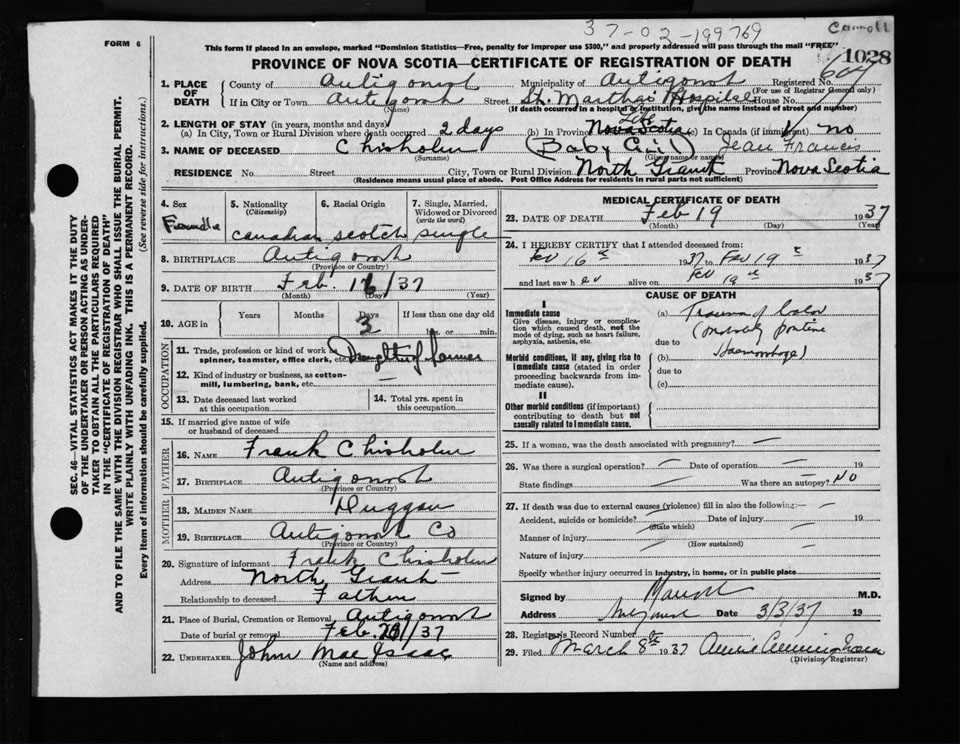 37-02-199769
Carroll
FORM 6
This form if placed in an envelope, marked "Dominion Statistics—Free, penalty for improper use $300," and properly addressed will pass through the mail "FREE"
PROVINCE OF NOVA SCOTIA—CERTIFICATE OF REGISTRATION OF DEATH 1028
1. PLACE OF DEATH County of Antigonish Municipality of Antigonish Registered No. 604
(For use of Registrar General only)
If in City or Town Antigonish Street St. Martha's Hospital House No.
(If death occurred in a hospital or institution, give the name instead of street and number)
2. LENGTH OF STAY (in years, months and days)
(a) In City, Town or Rural Division where death occurred 2 days (b) In Province Life Nova Scotia (c) In Canada (if immigrant) no
3. NAME OF DECEASED Chisholm (Baby Girl) Jean Frances
(Surname) (Given name or names)
RESIDENCE No. Street City, Town or Rural Division North Grant Province Nova Scotia
(Residence means usual place of abode. Post Office Address for residents in rural parts not sufficient)
4. Sex 5. Nationality (Citizenship) 6. Racial Origin 7. Single, Married, Widowed or Divorced (write the word)
Female Canadian Scotch Single
8. BIRTHPLACE Antigonish
(Province or Country)
9. DATE OF BIRTH Feb. 16/37
(Month) (Day) (Year)
10. AGE in Years Months Days If less than one day
3 hrs. or min.
OCCUPATION
11. Trade, profession or kind of work as spinner, teamster, office clerk, etc. Daughter of farmer
12. Kind of industry or business, as cotton-mill, lumbering, bank, etc. —
13. Date deceased last worked at this occupation
14. Total yrs. spent in this occupation
15. If married give name of wife or husband of deceased
FATHER
16. NAME Frank Chisholm
17. BIRTHPLACE Antigonish
(Province or Country)
MOTHER
18. MAIDEN NAME Duggan
19. BIRTHPLACE Antigonish Co
(Province or Country)
20. Signature of informant Frank Chisholm
Address North Grant
Relationship to deceased Father
21. Place of Burial, Cremation or Removal Antigonish
Date of burial or removal Feb. /37
22. UNDERTAKER John MacIsaac
(Name and address)
MEDICAL CERTIFICATE OF DEATH
23. DATE OF DEATH Feb 19 1937
(Month) (Day) (Year)
24. I HEREBY CERTIFY that I attended deceased from:
Feb 16th 1937 to Feb 19th 1937
and last saw her alive on Feb 19th 1937
CAUSE OF DEATH
I
Immediate cause
Give disease, injury or complication which caused death, not the mode of dying, such as heart failure, asphyxia, asthenia, etc.
(a) Trauma of Labor
due to
Morbid conditions, if any, giving rise to immediate cause (stated in order proceeding backwards from immediate cause).
(b) Haemorrhage)
due to
(c)
II
Other morbid conditions (if important) contributing to death but not causally related to immediate cause.
25. If a woman, was the death associated with pregnancy? —
26. Was there a surgical operation? — Date of operation — 19
State findings — Was there an autopsy? No
27. If death was due to external causes (violence) fill in also the following:—
Accident, suicide or homicide? — Date of injury — 19
(State which)
Manner of injury —
(How sustained)
Nature of injury —
Specify whether injury occurred in industry, in home, or in public place
Signed by M.D.
Address Antigonish Date 3/3/37 19
28. Registrar's Record Number
29. Filed March 8th 1937 Annie Cunningham
(Division Registrar)
SEC. 46—VITAL STATISTICS ACT MAKES IT THE DUTY OF THE UNDERTAKER OR PERSON ACTING AS UNDERTAKER TO OBTAIN ALL THE PARTICULARS REQUIRED IN THE "CERTIFICATE OF REGISTRATION OF DEATH" AND TO FILE THE SAME WITH THE DIVISION REGISTRAR WHO SHALL ISSUE THE BURIAL PERMIT.
WRITE PLAINLY WITH UNFADING INK. THIS IS A PERMANENT RECORD.
Every item of information should be carefully supplied. (See reverse side for instructions.)